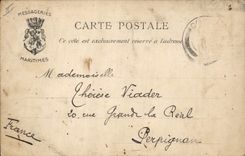 MESSAGERIES
MARITIMES
CARTE POSTALE
Ce côté est exclusivement réservé à l'adresse
Mademoiselle
Thérèse Viader
20, rue Grande la Réal
Perpignan
France